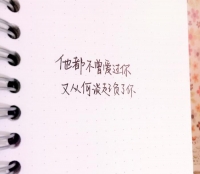 他都不曾爱过你
又从何谈起负了你